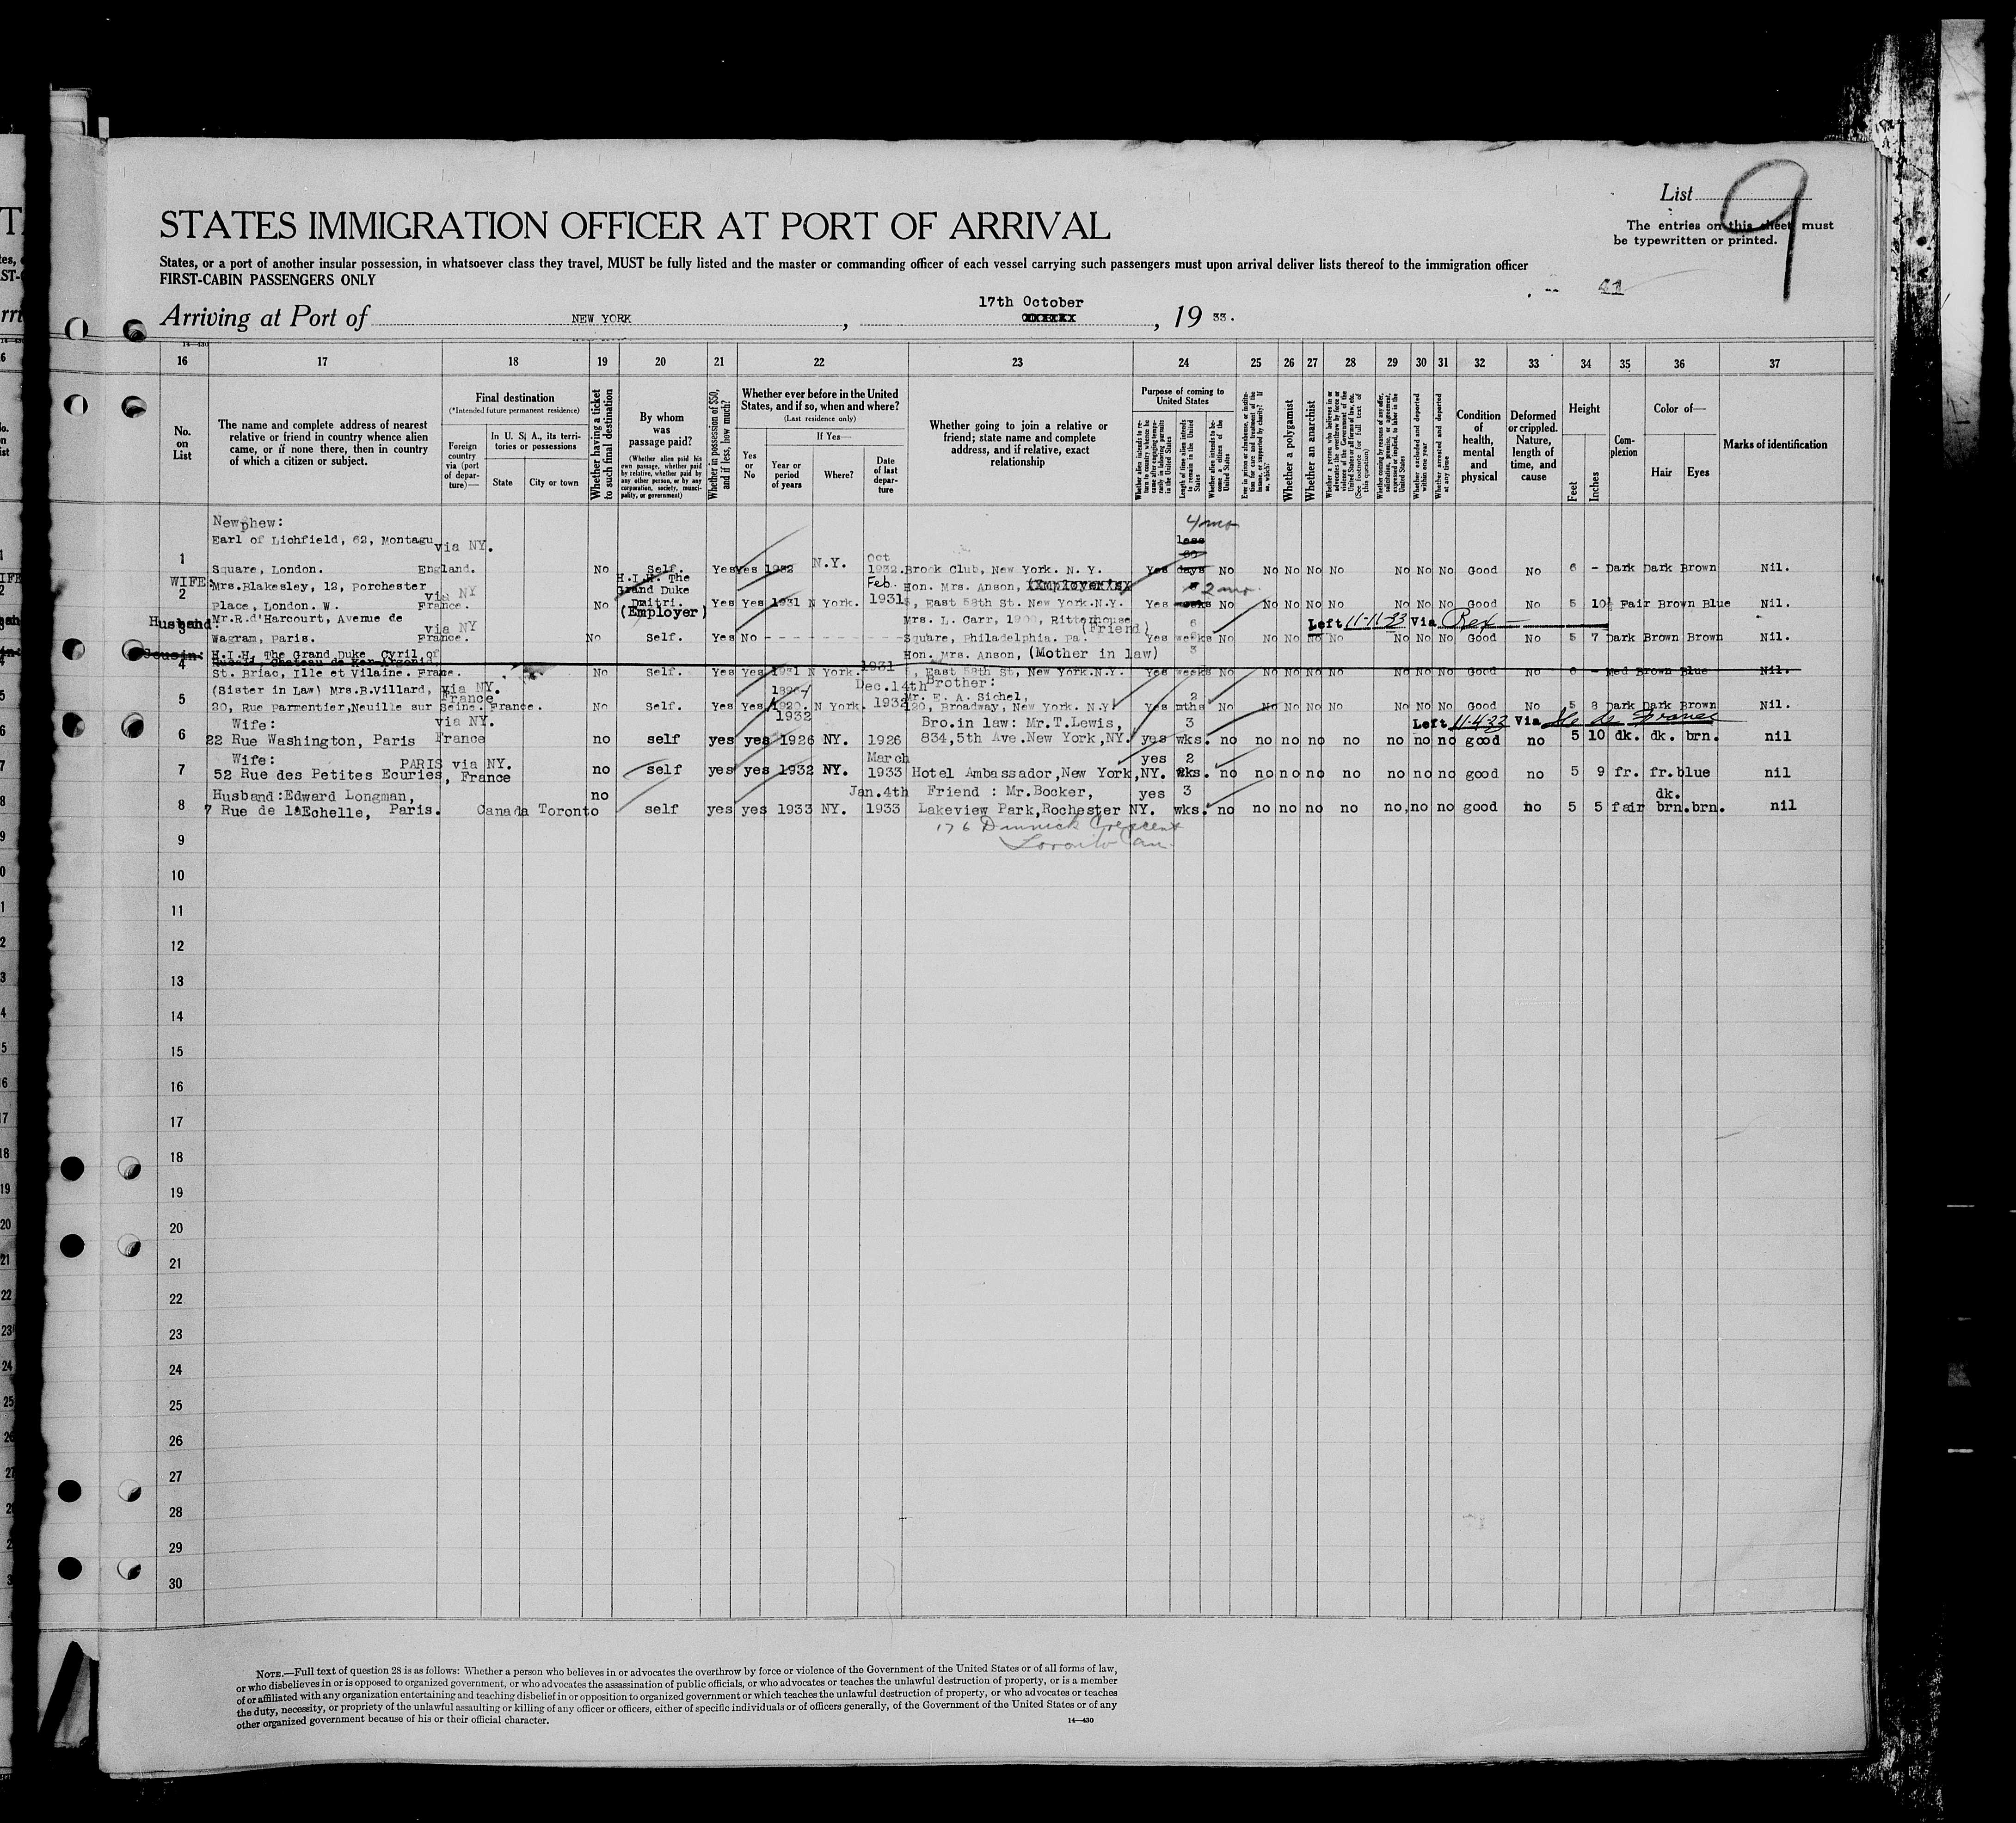 List 9
The entries on this sheet must
be typewritten or printed.
STATES IMMIGRATION OFFICER AT PORT OF ARRIVAL
States, or a port of another insular possession, in whatsoever class they travel, MUST be fully listed and the master or commanding officer of each vessel carrying such passengers must upon arrival deliver lists thereof to the immigration officer
FIRST-CABIN PASSENGERS ONLY
Arriving at Port of NEW YORK, 17th October, 19 33.
14—430
16 17 18 19 20 21 22 23 24 25 26 27 28 29 30 31 32 33 34 35 36 37
No. on List
The name and complete address of nearest relative or friend in country whence alien came, or if none there, then in country of which a citizen or subject.
Final destination
(*Intended future permanent residence)
Foreign country via (port of departure)—
In U. S. A., its territories or possessions
State
City or town
Whether having a ticket to such final destination
By whom was passage paid?
(Whether alien paid his own passage, whether paid by relative, whether paid by any other person, or by any corporation, society, municipality, or government)
Whether in possession of $50, and if less, how much?
Whether ever before in the United States, and if so, when and where?
(Last residence only)
Yes or No
If Yes—
Year or period of years
Where?
Date of last departure
Whether going to join a relative or friend; state name and complete address, and if relative, exact relationship
Purpose of coming to United States
Length of time alien intends to remain in the United States
Whether alien intends to become a citizen of the United States
Whether a polygamist
Whether an anarchist
Whether excluded and deported within one year
Whether arrested and deported at any time
Condition of health, mental and physical
Deformed or crippled. Nature, length of time, and cause
Height
Feet
Inches
Complexion
Color of—
Hair
Eyes
Marks of identification
Newphew:
Earl of Lichfield, 62, Montagu via NY. 4 mo
less
60
1 Square, London. England. No Self. Yes Yes 1932 N.Y. Oct 1932. Brook Club, New York. N. Y. Yes days No No No No No No No No Good No 6 - Dark Dark Brown Nil.
WIFE: Mrs.Blakesley, 12, Porchester via NY H.I.H. The Grand Duke Feb. Hon. Mrs. Anson, 2 mo.
2 Place, London. W. France. No Dmitri. (Employer) Yes Yes 1931 N York. 1931 , East 58th St. New York.N.Y. Yes No No No No No No No No Good No 5 10½ Fair Brown Blue Nil.
Husband: Mr.R.d'Harcourt, Avenue de via NY Mrs. L. Carr, Rittenhouse (Friend) 6 Left 11-11-33 Via Rex
3 Wagram, Paris. France. No Self. Yes No - - - - - Square, Philadelphia. Pa. Yes weeks No No No No No No No No Good No 5 7 Dark Brown Brown Nil.
Cousin: H.I.H. The Grand Duke Cyril of Hon. Mrs. Anson, (Mother in law) 3
4 St. Briac, Ille et Vilaine. France. No Self. Yes Yes 1931 N York. 1931 , East 58th St, New York.N.Y. Yes weeks No No No No No No No No Good No 6 - Med Brown Blue Nil.
(Sister in Law) Mrs.B.Villard, via NY. Dec.14th Brother:
Mr. E. A. Sichel, 2
5 20, Rue Parmentier,Neuille sur Seine. France. No Self. Yes Yes 1920. N York. 1932 120, Broadway, New York. N.Y. Yes mths No No No No No No No No Good No 5 8 Dark Dark Brown Nil.
Wife: via NY. 1932 Bro.in law: Mr.T.Lewis, 3 Left 11-4-33 Via Ile de France
6 22 Rue Washington, Paris France no self yes yes 1926 NY. 1926 834,5th Ave.New York,NY. yes wks. no no no no no no no no good no 5 10 dk. dk. brn. nil
Wife: PARIS via NY. March yes 2
7 52 Rue des Petites Ecuries, France no self yes yes 1932 NY. 1933 Hotel Ambassador,New York,NY. wks. no no no no no no no no good no 5 9 fr. fr.blue nil
Husband:Edward Longman, no Jan.4th Friend : Mr.Bocker, yes 3 dk.
8 7 Rue de l'Echelle, Paris. Canada Toronto self yes yes 1933 NY. 1933 Lakeview Park,Rochester NY. wks. no no no no no no,no no good no 5 5 fair brn.brn. nil
9 176 Crescent
Toronto Can.
10
11
12
13
14
15
16
17
18
19
20
21
22
23
24
25
26
27
28
29
30
NOTE.—Full text of question 28 is as follows: Whether a person who believes in or advocates the overthrow by force or violence of the Government of the United States or of all forms of law,
or who disbelieves in or is opposed to organized government, or who advocates the assassination of public officials, or who advocates or teaches the unlawful destruction of property, or is a member
of or affiliated with any organization entertaining and teaching disbelief in or opposition to organized government or which teaches the unlawful destruction of property, or who advocates or teaches
the duty, necessity, or propriety of the unlawful assaulting or killing of any officer or officers, either of specific individuals or of officers generally, of the Government of the United States or of any
other organized government because of his or their official character.
14—430